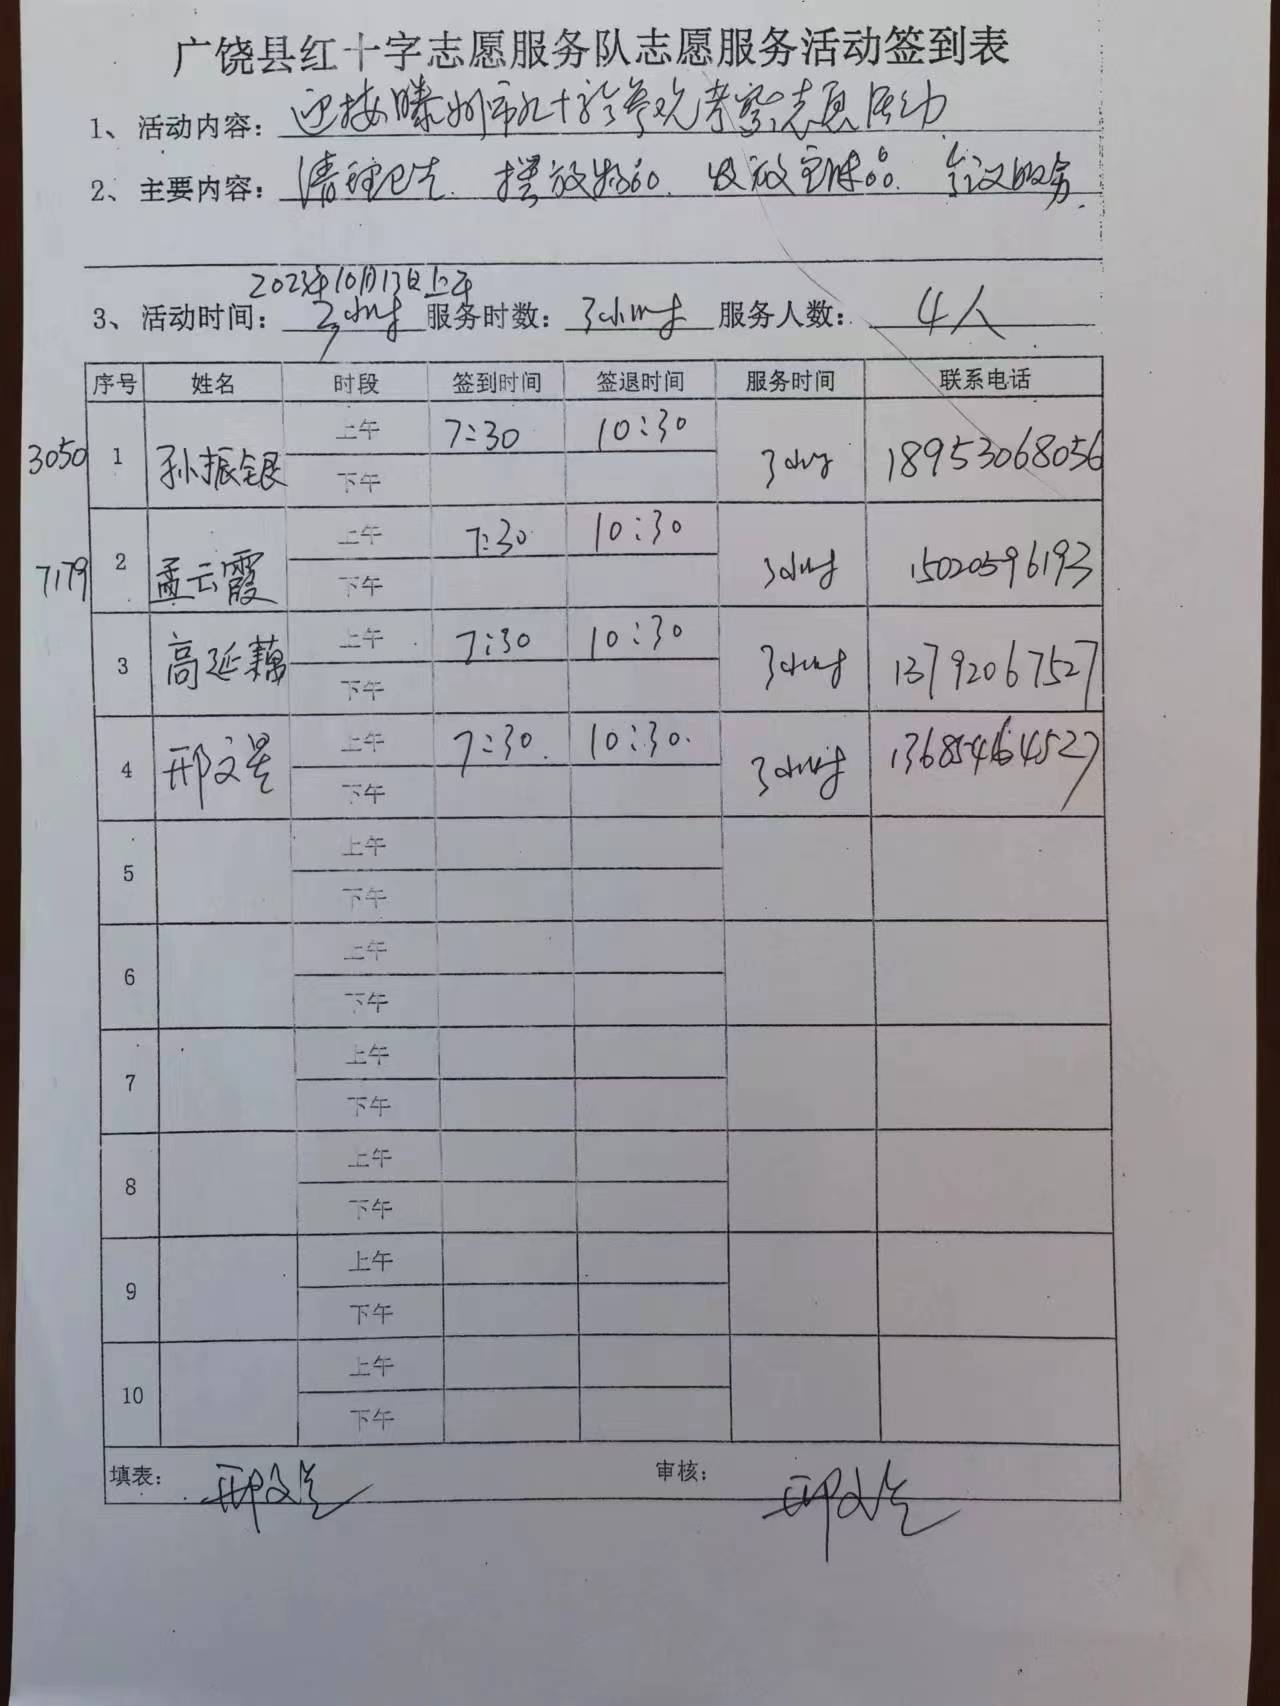 广饶县红十字志愿服务队志愿服务活动签到表
1、活动内容：迎接滕州市红十字会参观考察志愿活动
2、主要内容：清理卫生.摆放物品.发放宣传品.会议服务.
2023年10月13日上午
3、活动时间：3小时 服务时数：3小时 服务人数：4人
序号 姓名 时段 签到时间 签退时间 服务时间 联系电话
3050 1 孙振银 上午 7:30 10:30 3小时 18953068056
下午
7179 2 孟云霞 上午 7:30 10:30 3小时 15020596193
下午
3 高延藕 上午 7:30 10:30 3小时 13792067527
下午
4 邢文 上午 7:30. 10:30. 3小时
下午
5 上午
下午
6 上午
下午
7 上午
下午
8 上午
下午
9 上午
下午
10 上午
下午
填表： 邢文 审核： 邢文